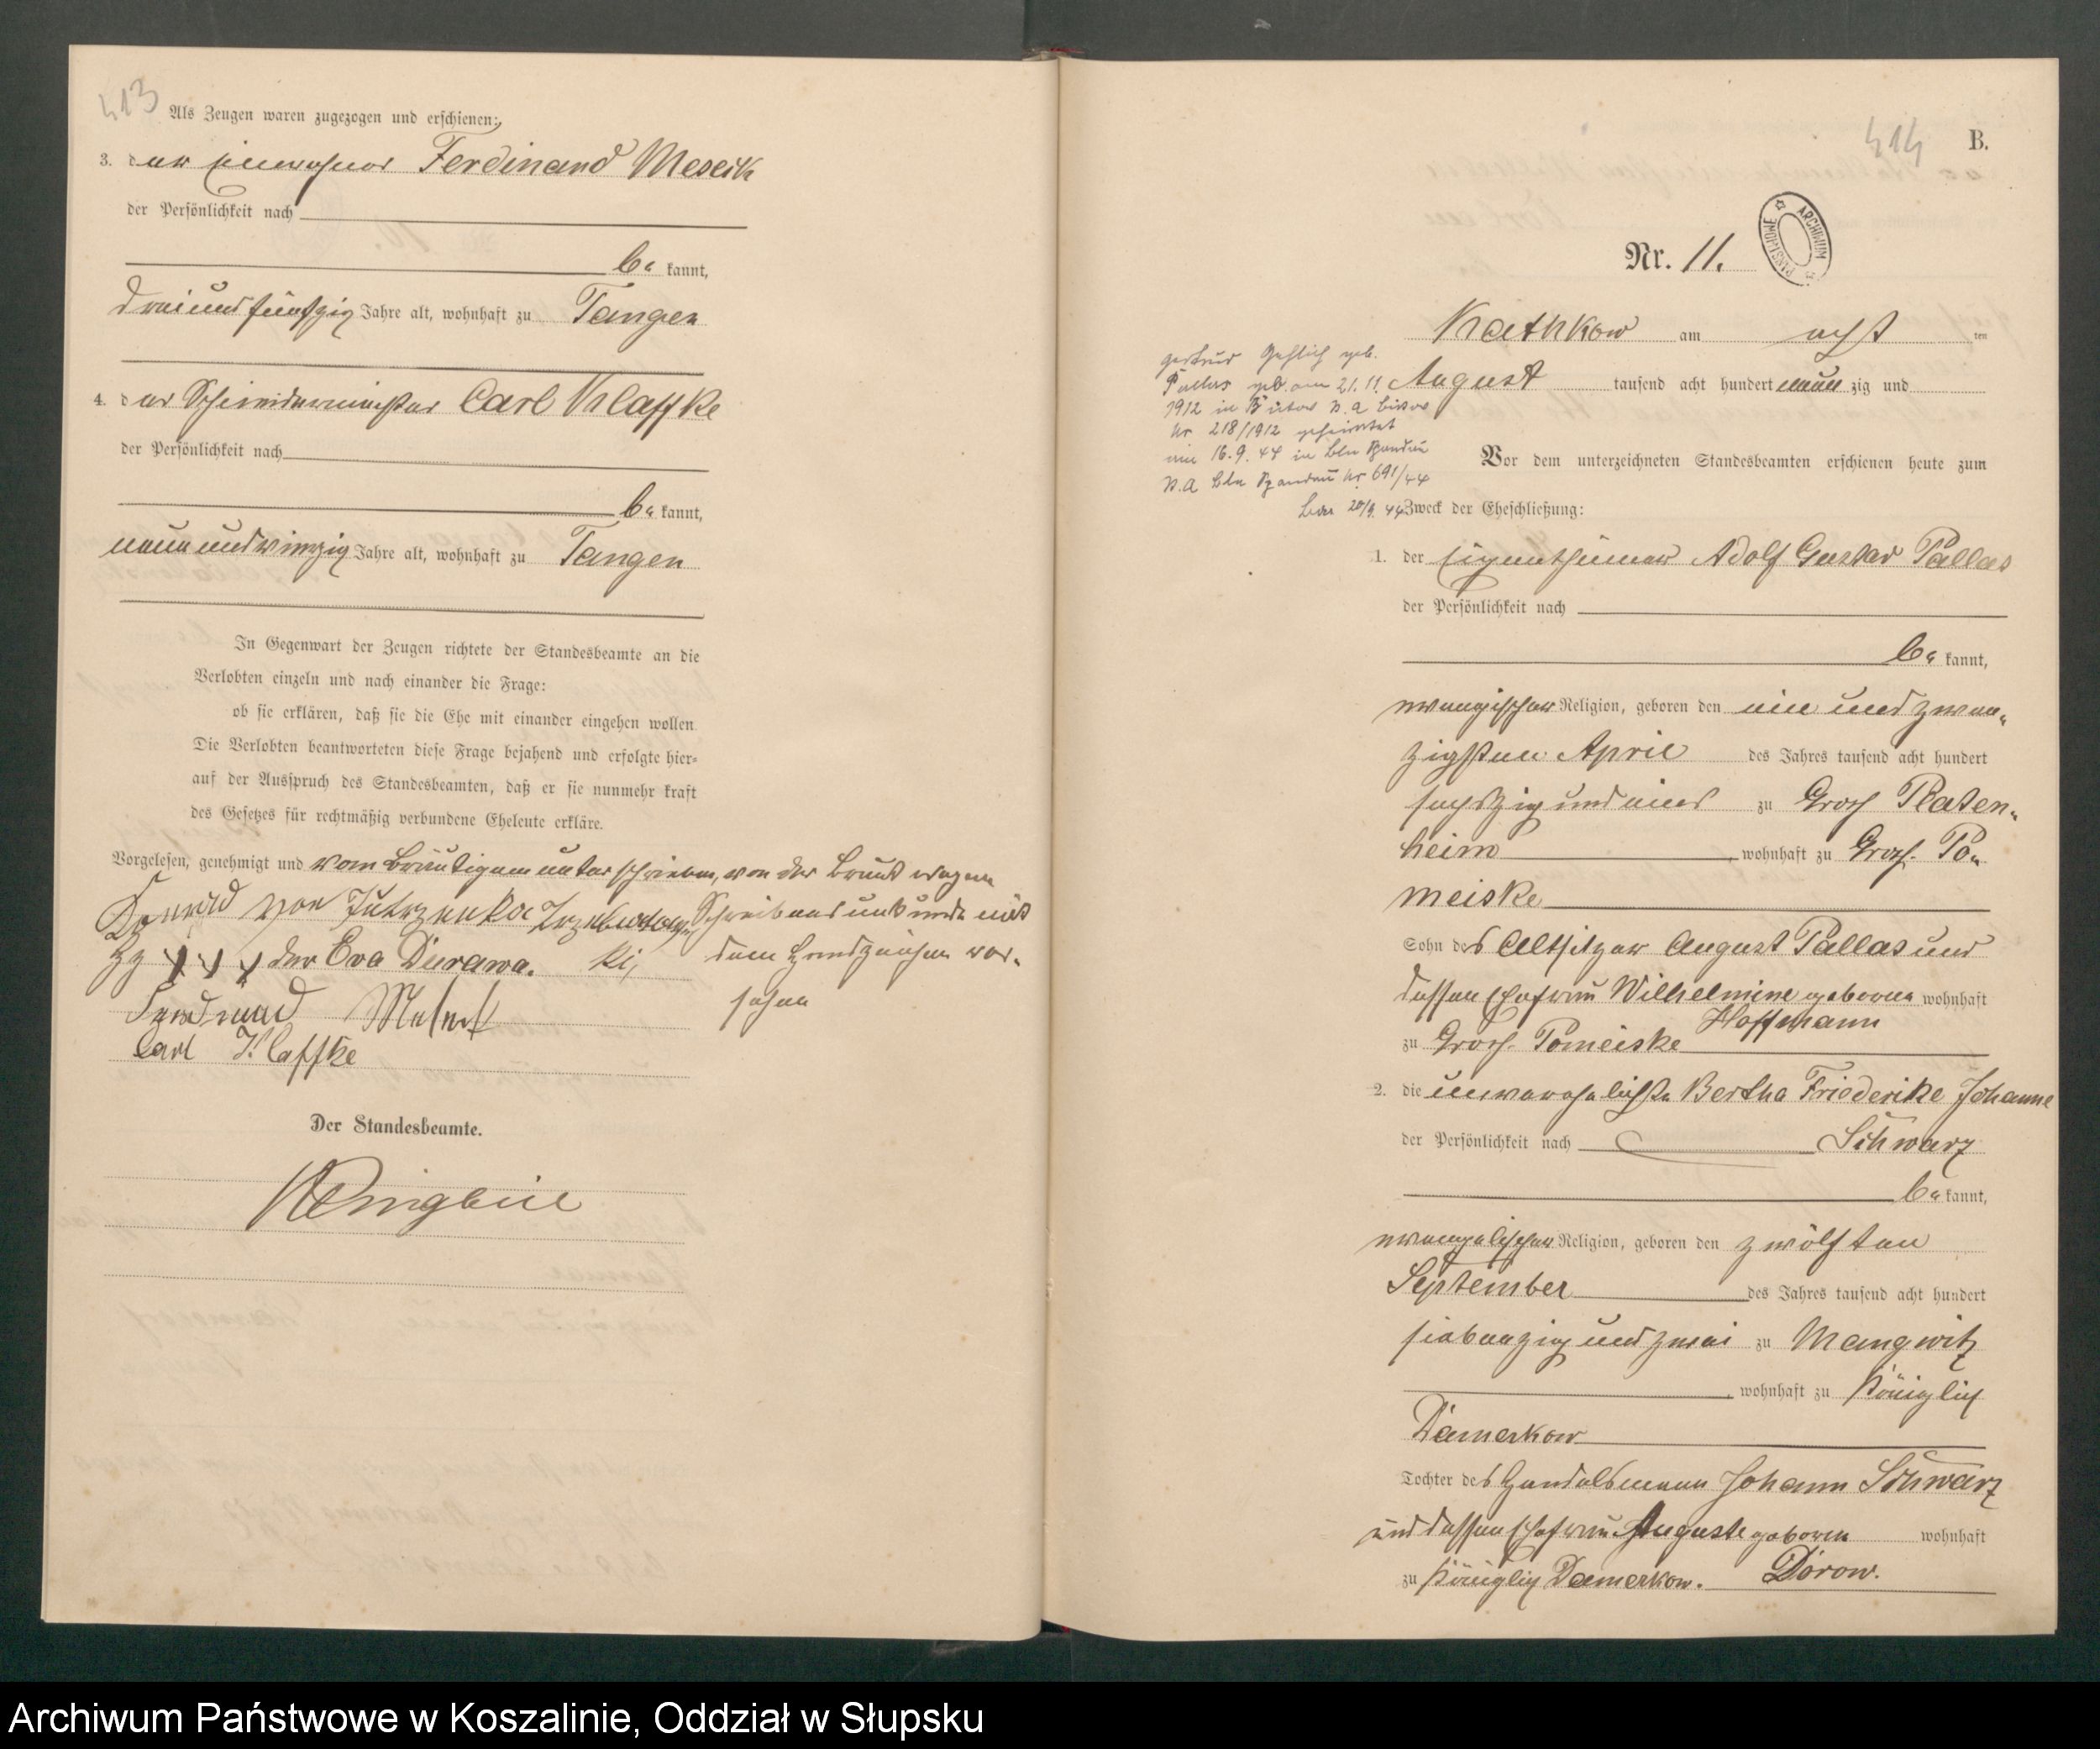 413
Als Zeugen waren zugezogen und erschienen:
3. der Einwohner Ferdinand Meseck
der Persönlichkeit nach
be kannt,
dreiundfünfzig Jahre alt, wohnhaft zu Tangen
4. der Schneidermeister Carl Klaffke
der Persönlichkeit nach
be kannt,
neunundvierzig Jahre alt, wohnhaft zu Tangen
In Gegenwart der Zeugen richtete der Standesbeamte an die
Verlobten einzeln und nach einander die Frage:
ob sie erklären, daß sie die Ehe mit einander eingehen wollen
Die Verlobten beantworteten diese Frage bejahend und erfolgte hier-
auf der Ausspruch des Standesbeamten, daß er sie nunmehr kraft
des Gesetzes für rechtmäßig verbundene Eheleute erkläre.
Vorgelesen, genehmigt und vom Bräutigam unterschrieben, von der Braut wegen
Schreibensunkunde mit
dem Handzeichen ver-
sehen
Konrad von Jutrzenka
+ + + der Eva Durawa.
Ferdinand
Carl Klaffke
Der Standesbeamte.
414
B.
Nr. 11.
ARCHIWUM PAŃSTWOWE
Kathkow am acht ten
August tausend acht hundert neun zig und
Gertrud geb.
Pallas geb. am 21.11.
1912 in Bütow
Nr 218/1912 geheiratet
am 16.9.44 in Bln Spandau
Bln Spandau Nr 691/44
Vor dem unterzeichneten Standesbeamten erschienen heute zum
Zweck der Eheschließung:
1. der Eigenthümer Adolf Gustav Pallas
der Persönlichkeit nach
be kannt,
evangelischer Religion, geboren den ein und zwan-
zigsten April des Jahres tausend acht hundert
sechszig und eins zu Groß Platen-
heim wohnhaft zu Groß Po-
meiske
Sohn des Altsitzer August Pallas und
dessen Ehefrau Wilhelmine geborene wohnhaft
Hoffmann
zu Groß Pomeiske
2. die unverehelichte Bertha Friederike Johanne
der Persönlichkeit nach Schwarz
be kannt,
evangelischer Religion, geboren den zwölften
September des Jahres tausend acht hundert
siebenzig und zwei zu Mangwitz
wohnhaft zu Königlich
Damerkow
Tochter des Handelsmann Johann Schwarz
und dessen Ehefrau Auguste geboren wohnhaft
zu Königlich Damerkow. Dorow.
Archiwum Państwowe w Koszalinie, Oddział w Słupsku